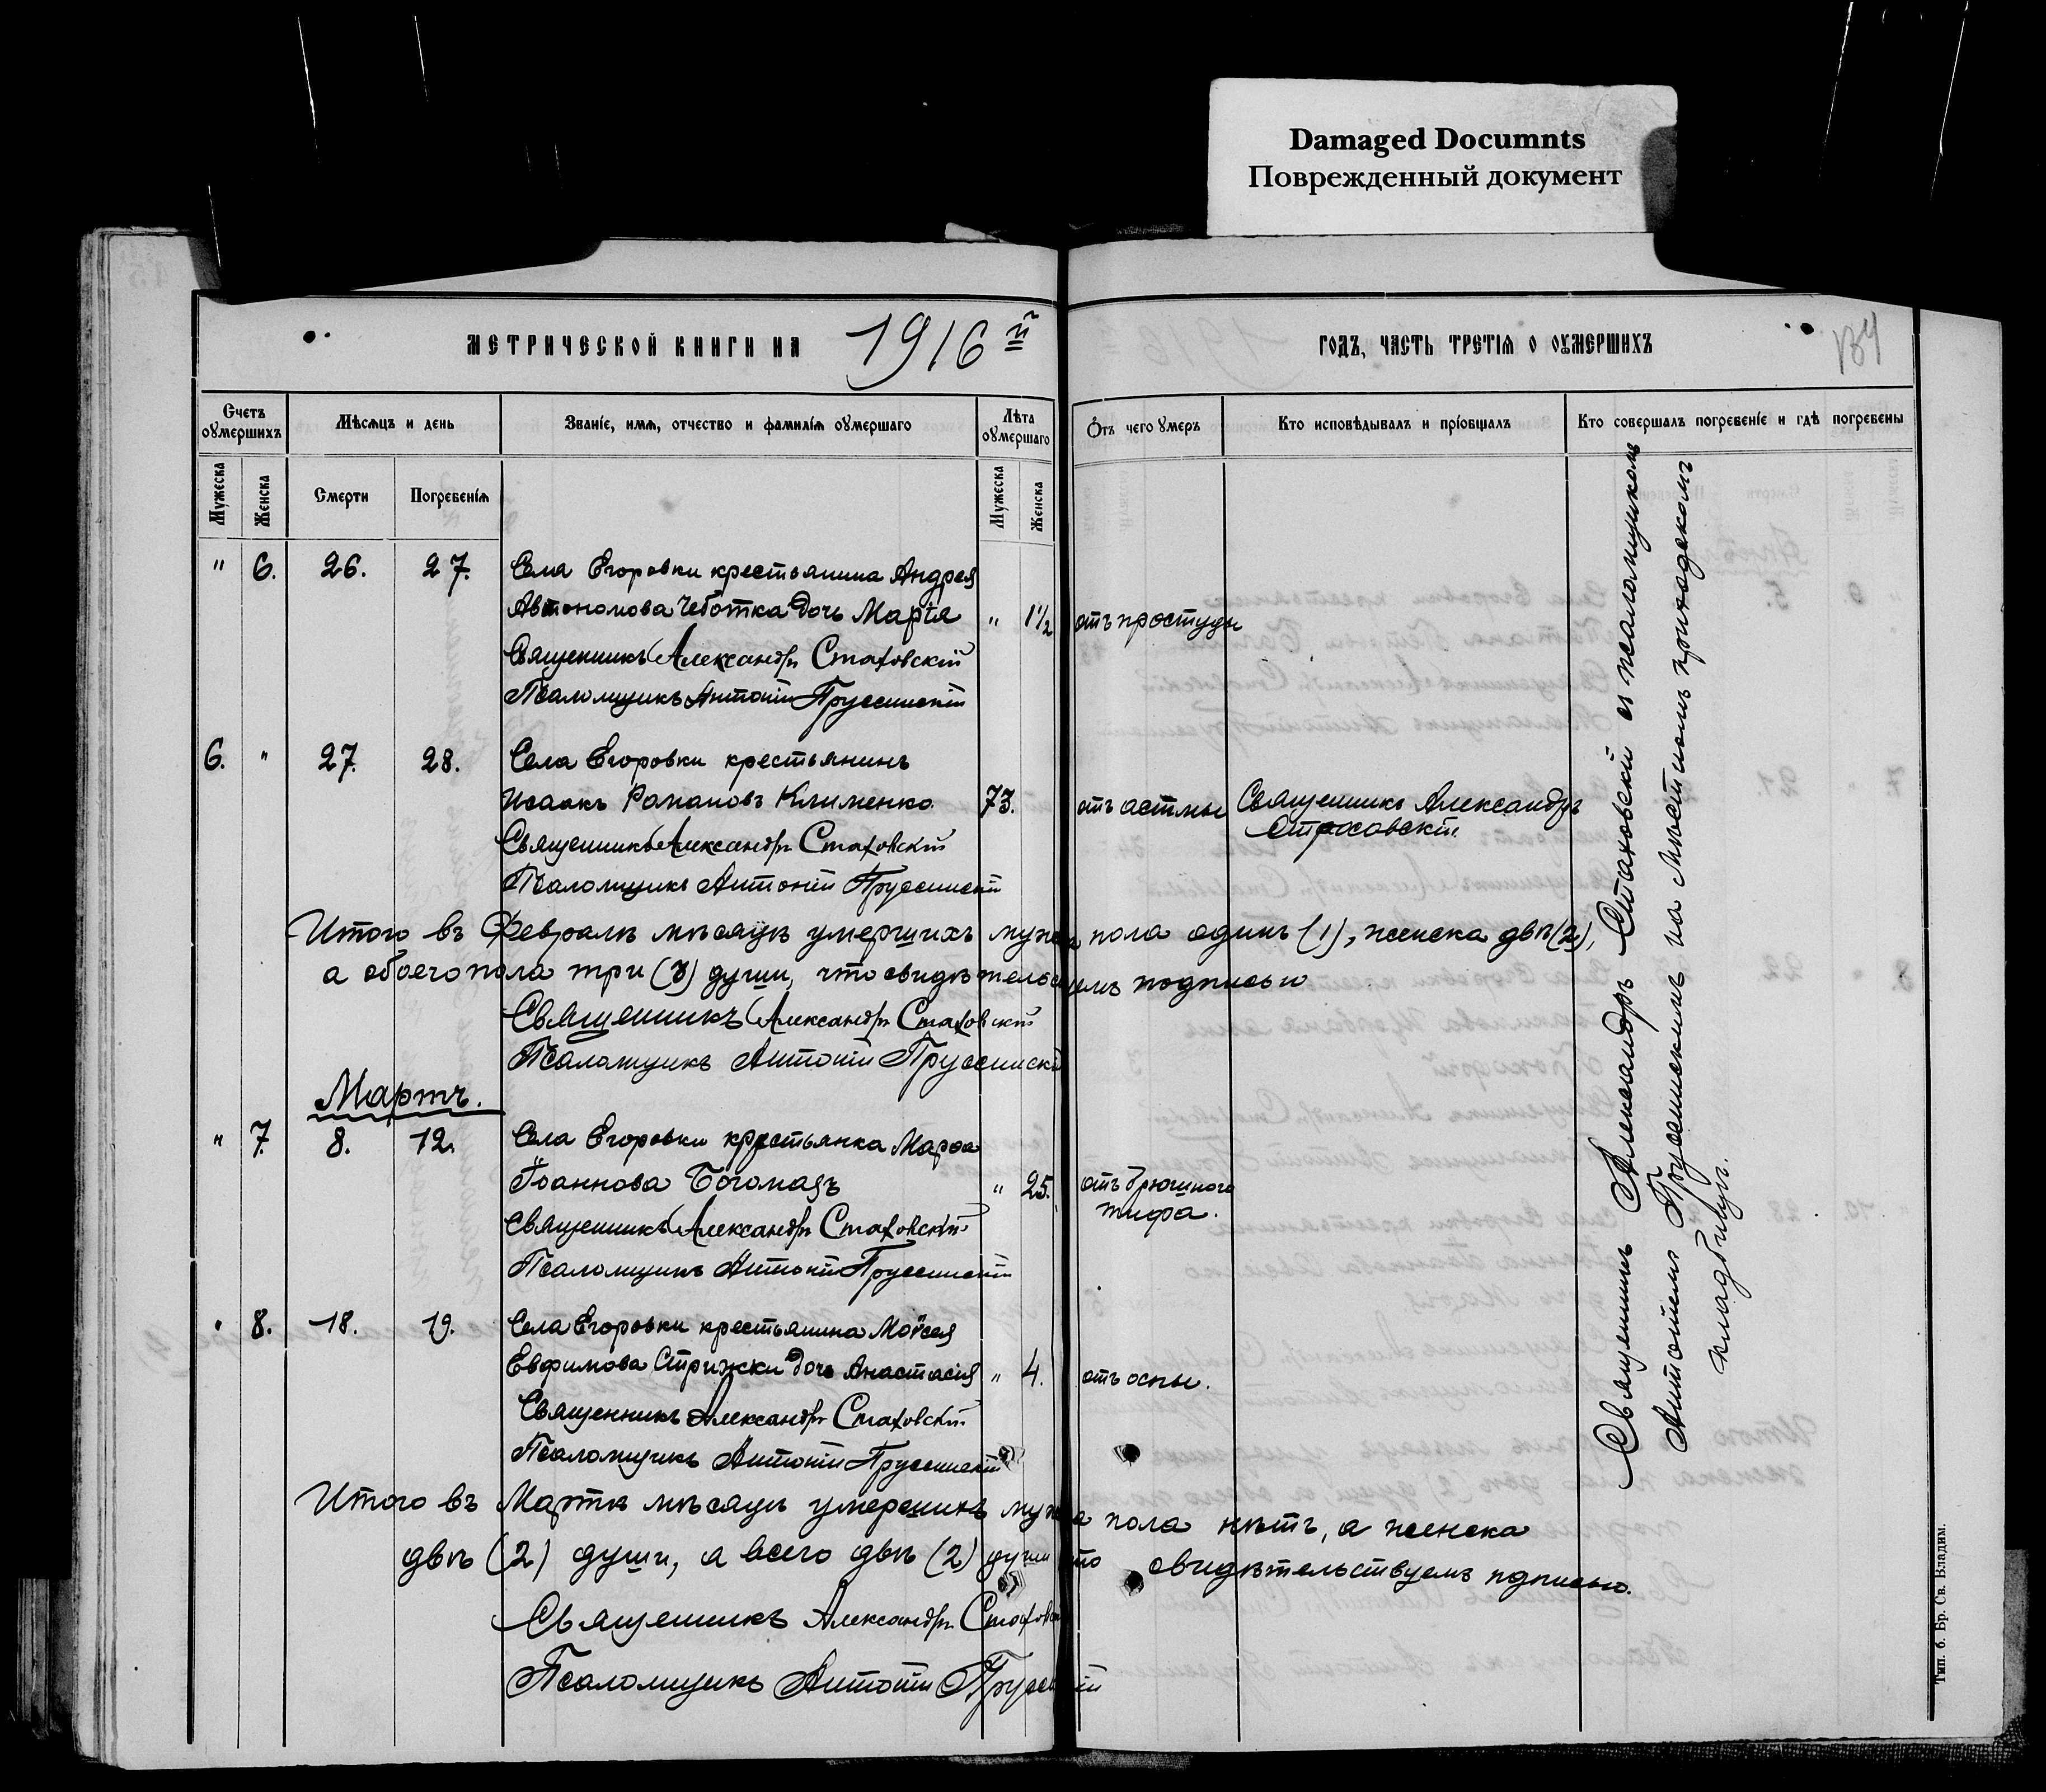 Damaged Documnts
Поврежденный документ
МЕТРИЧЕСКОЙ КНИГИ НА 1916й ГОДЪ, ЧАСТЬ ТРЕТІЯ О ОУМЕРШИХЪ
Счетъ оумершихъ
Мѣсяцъ и день
Званіе, имя, отчество и фамилія оумершаго
Лѣта оумершаго
Отъ чего умеръ
Кто исповѣдывалъ и пріобщалъ
Кто совершалъ погребеніе и гдѣ погребены
Мужеска
Женска
Смерти
Погребенія
Мужеска
Женска
" 6. 26. 27. Села Егоровки крестьянина Андрея
Автономова Чеботка дочь Марія " 1½ отъ простуды
Священникъ Александръ Стаховскій
Псаломщикъ Антоній Пруссинскій
6. " 27. 28. Села Егоровки крестьянинъ
Исаакъ Романовъ Клименко 73. отъ астмы Священникъ Александръ
Стаховскій
Священникъ Александръ Стаховскій
Псаломщикъ Антоній Пруссинскій
Итого въ Февралѣ мѣсяцѣ умершихъ мужска пола одинъ (1), женска двѣ (2),
а обоего пола три (3) души, что свидѣтельствуемъ подписью
Священникъ Александръ Стаховскій
Псаломщикъ Антоній Пруссинскій
Мартъ.
" 7. 8. 12. Села Егоровки крестьянка Марѳа
Іоаннова Богомазъ " 25. отъ брюшного
тифа.
Священникъ Александръ Стаховскій
Псаломщикъ Антоній Пруссинскій
" 8. 18. 19. Села Егоровки крестьянина Моѵсея
Евфимова Стрижки дочь Анастасія " 4. отъ оспы.
Священникъ Александръ Стаховскій
Псаломщикъ Антоній Пруссинскій
Итого въ Мартѣ мѣсяцѣ умершихъ мужска пола нѣтъ, а женска
двѣ (2) души, а всего двѣ (2) души что свидѣтельствуемъ пдписью.
Священникъ Александръ Стаховскій
Псаломщикъ Антоній Пруссинскій
Священникъ Александръ Стаховскій съ псаломщикомъ
Антоніемъ Пруссинскимъ на Мѣстномъ приходскомъ
кладбищѣ.
Тип. б. Бр. Св. Владим.